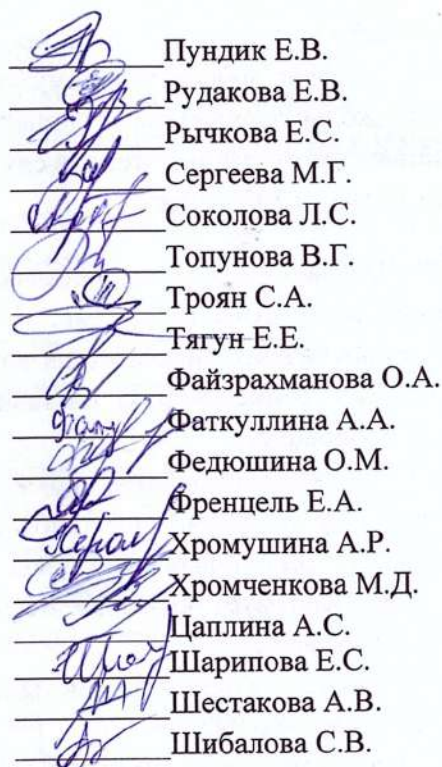 Пундик Е.В.
Рудакова Е.В.
Рычкова Е.С.
Сергеева М.Г.
Соколова Л.С.
Топунова В.Г.
Троян С.А.
Тягун Е.Е.
Файзрахманова О.А.
Фаткуллина А.А.
Федюшина О.М.
Френцель Е.А.
Хромушина А.Р.
Хромченкова М.Д.
Цаплина А.С.
Шарипова Е.С.
Шестакова А.В.
Шибалова С.В.